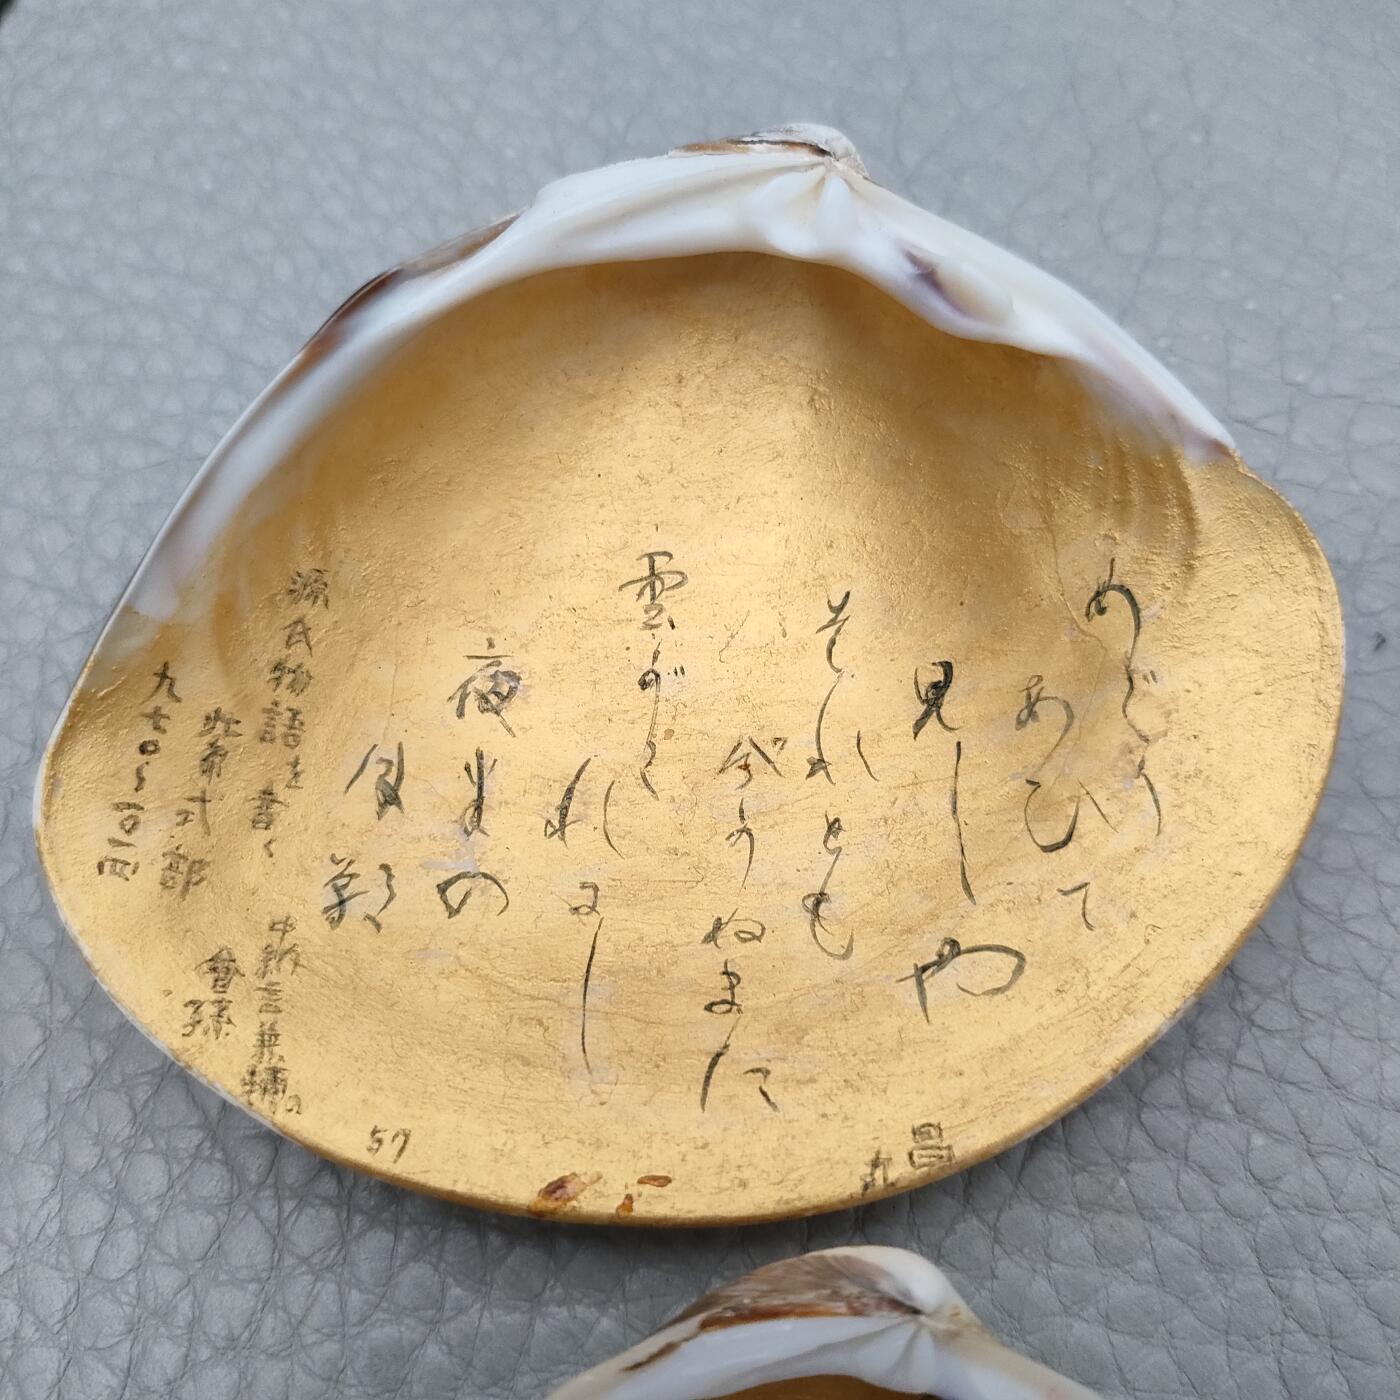 めぐり
あひて
見しや
それとも
分かぬまに
雲がく
れにし
夜半の
月影
源氏物語を書く 中納言兼輔の
紫式部 曾孫
九七〇〜
57